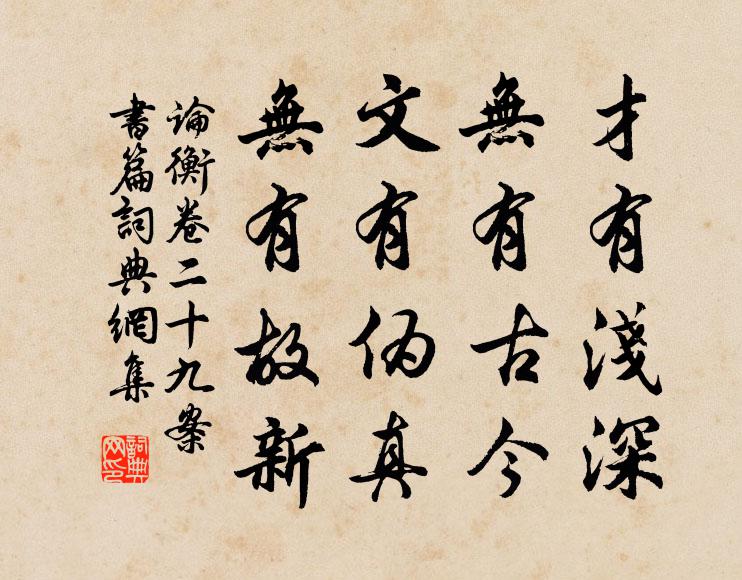 才有淺深
無有古今
文有伪真
無有故新
論衡卷二十九案
書篇詞典網集
詞典
网印